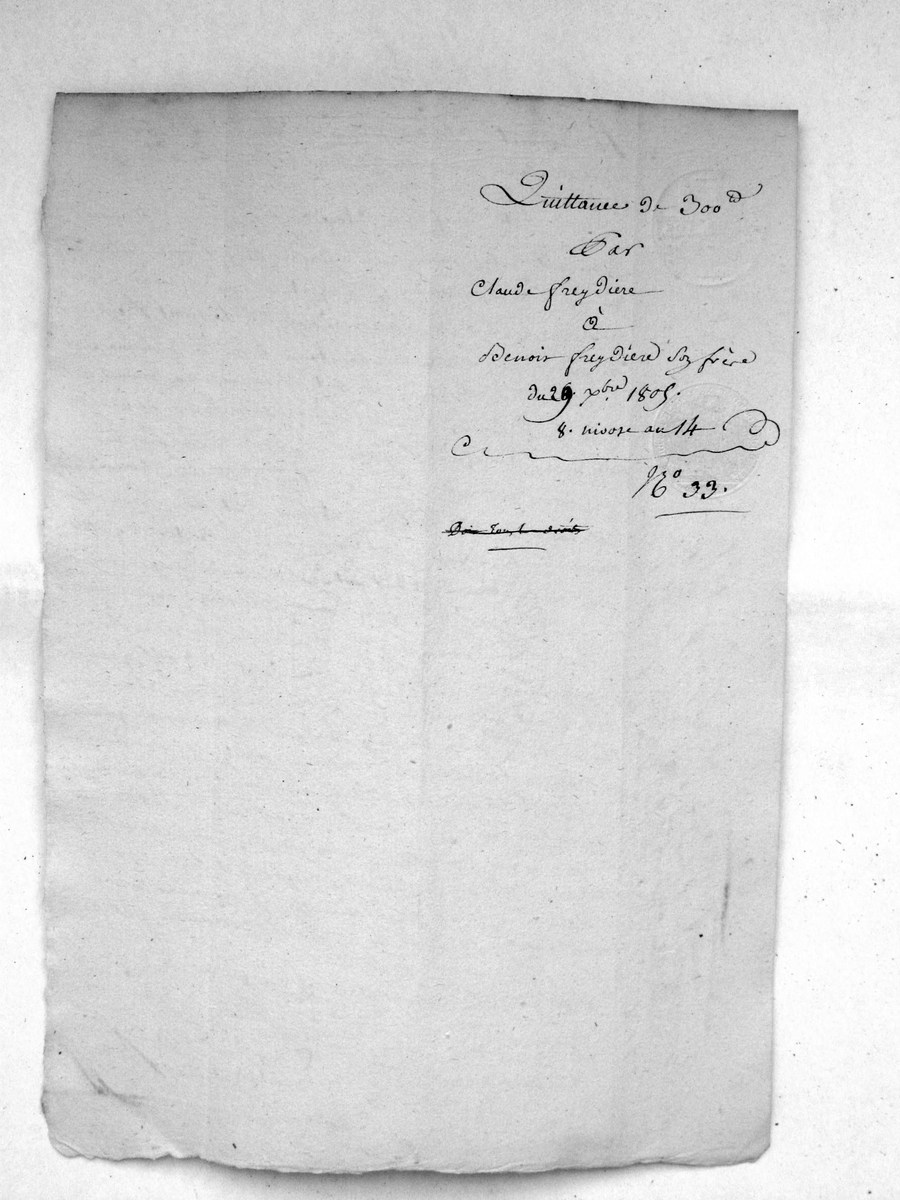 Quittance de 300 #
Par
Claude freydiere
à
Benoit freydiere Son frère
du 29 xbre 1805.
8. nivose an 14
No 33.
Doit tous les droits